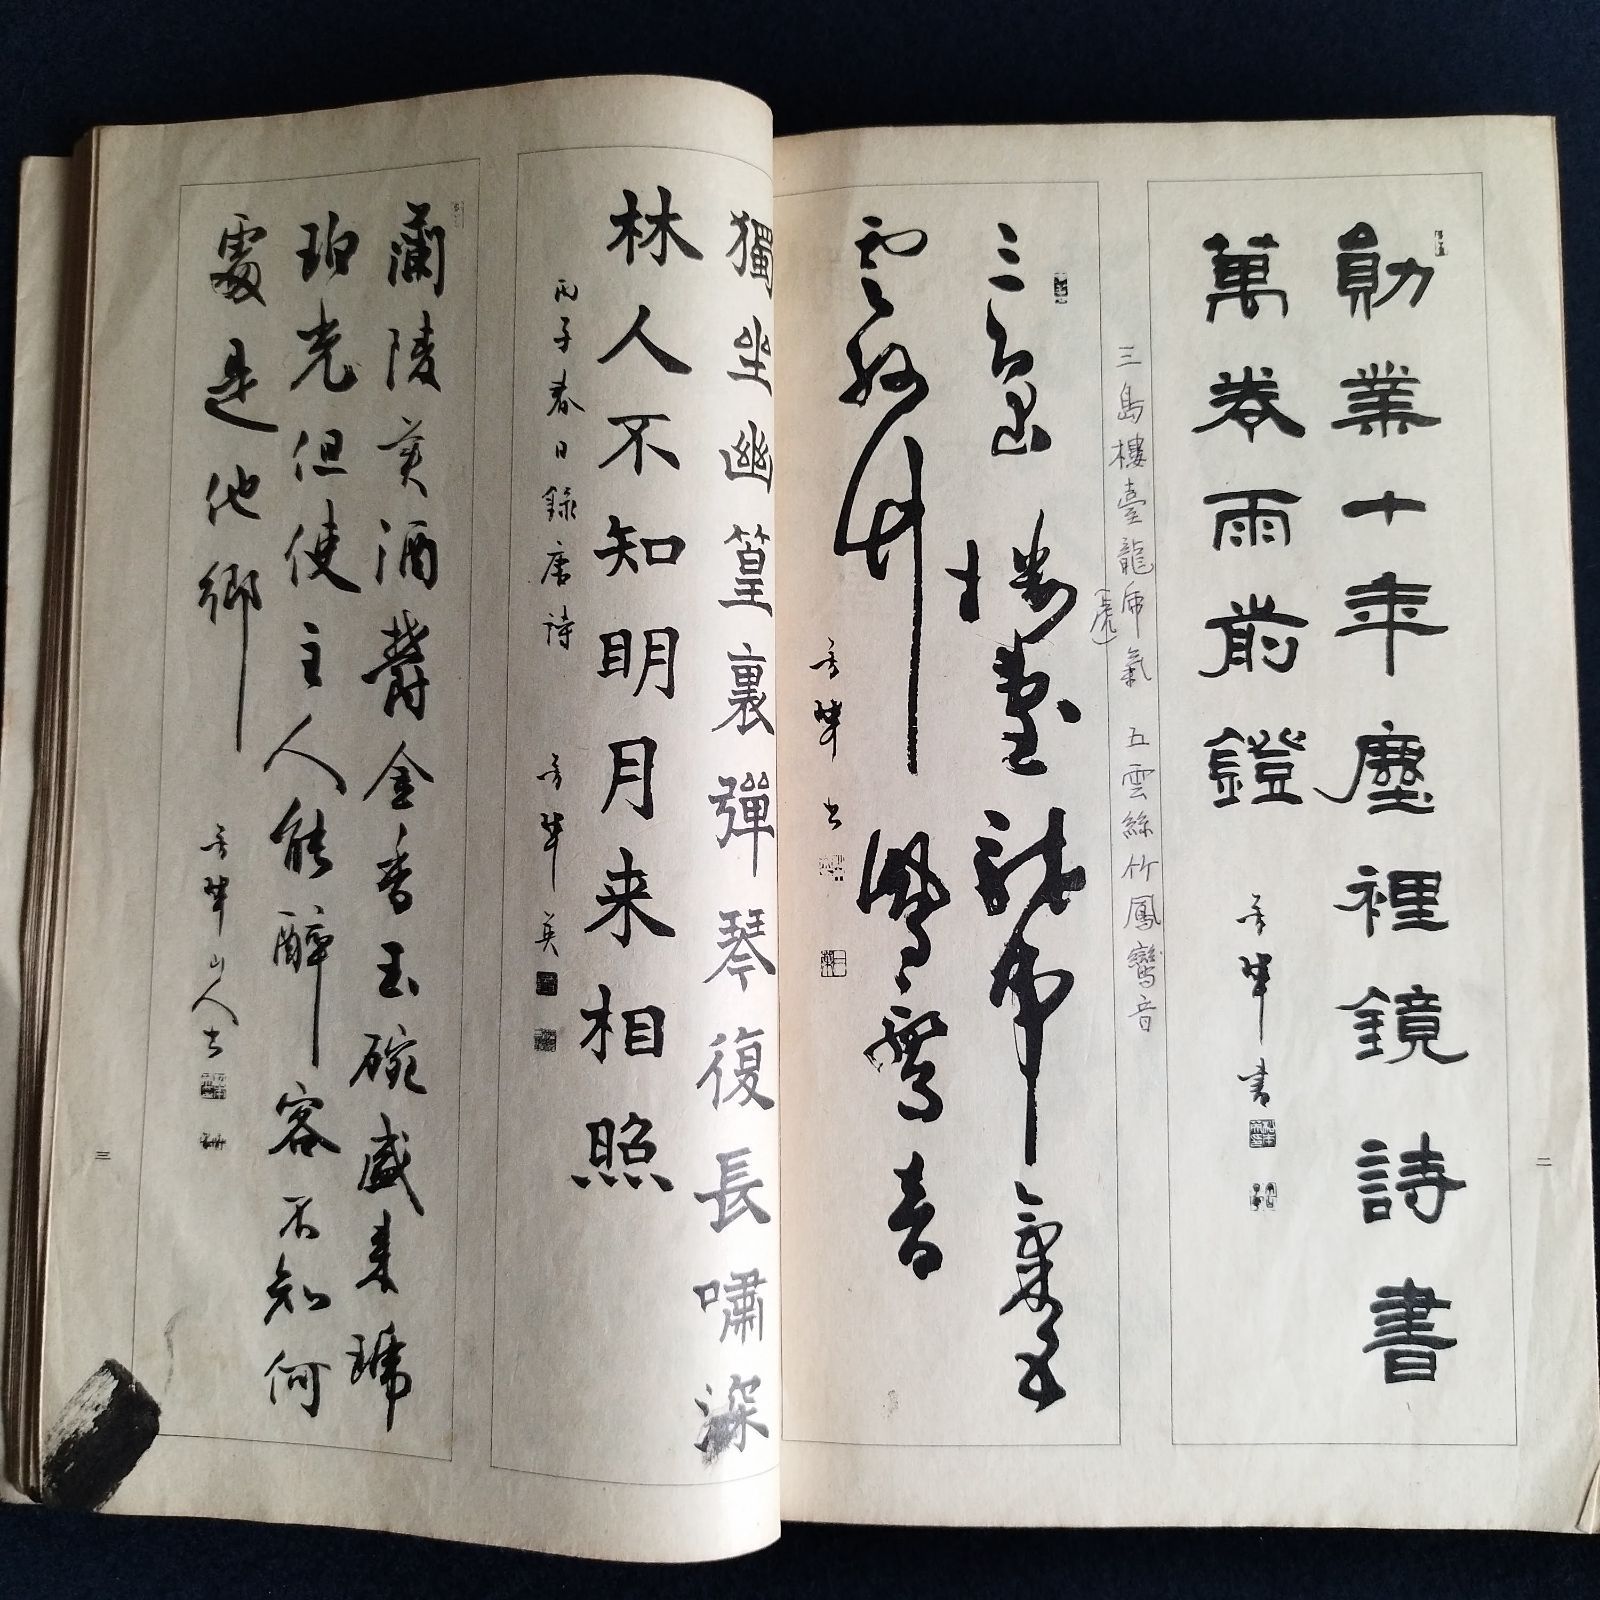 勛業十年塵裡鏡詩書
萬卷雨前鐙
芳翠書
二
三島樓臺龍虎氣 五雲絲竹鳳鸞音
(虎)
三島樓臺龍虎氣五
雲絲竹鳳鸞音
芳翠書
獨坐幽篁裏彈琴復長嘯深
林人不知明月来相照
丙子春日録唐詩 芳翠英
蘭陵美酒欝金香玉碗盛来琥
珀光但使主人能醉客不知何
處是他鄉
芳翠山人書
三